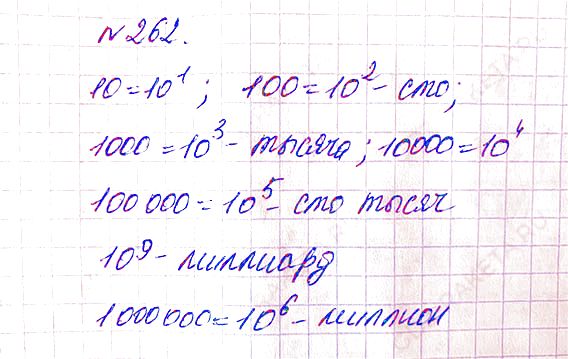 №262.
10=10¹; 100=10²- сто;
1000=10³- тысяча; 10000=10⁴
100 000=10⁵- сто тысяч
10⁹- миллиард
1000000=10⁶- миллион